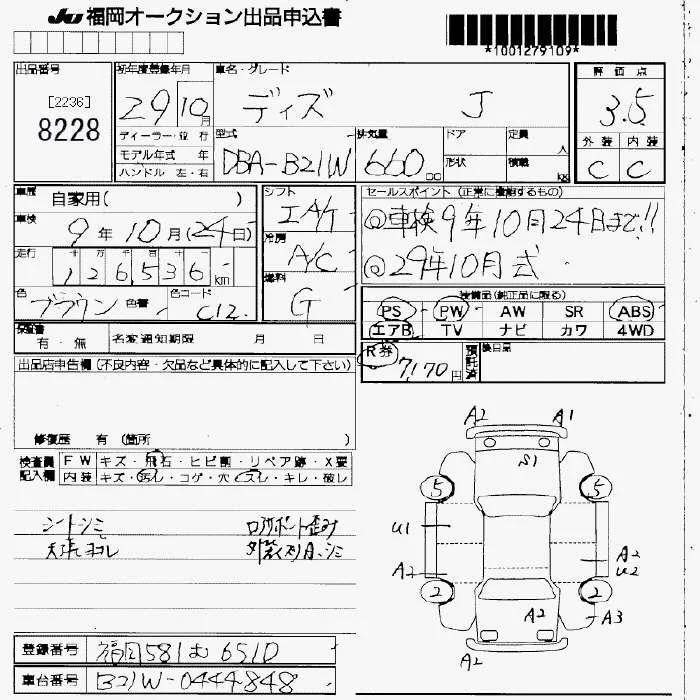 JU 福岡オークション出品申込書
*1001279109*
出品番号
[2236]
8228
初年度登録年月
29 10月
ディーラー・並 行
モデル年式 年
ハンドル 左・右
車名・グレード
ディズ J
型式
DBA-B21W
排気量
660 cc
ドア
形状
定員 人
積載 kg
評価点
3.5
外装 内装
C C
車歴
自家用( )
車検
9年10月(24日)
走行
十 万 千 百 十 一
126,536km
色
ブラウン 色替
色コード
C12
シフト
IA/T
冷房
A/C
燃料
G
セールスポイント(正常に機能するもの)
@車検9年10月24日まで!!
@29年10月式
装備品(純正品に限る)
PS PW AW SR ABS
エアB TV ナビ カワ 4WD
保証書
有・無
名変通知期限 月 日
R券
7,170円
預託済
後日品
出品店申告欄(不良内容・欠品など具体的に記入して下さい)
修復歴 有(箇所 )
検査員記入欄
FW キズ・飛石・ヒビ割・リペア跡・X要
内装 キズ・汚レ・コゲ・穴・スレ・キレ・破レ
シートシミ
天張ヨゴレ
A2 A1
S1
5 5
U1
A2
A2
U2
2 2
A2
A3
A2
登録番号
福岡581む6510
車台番号
B21W-0444848